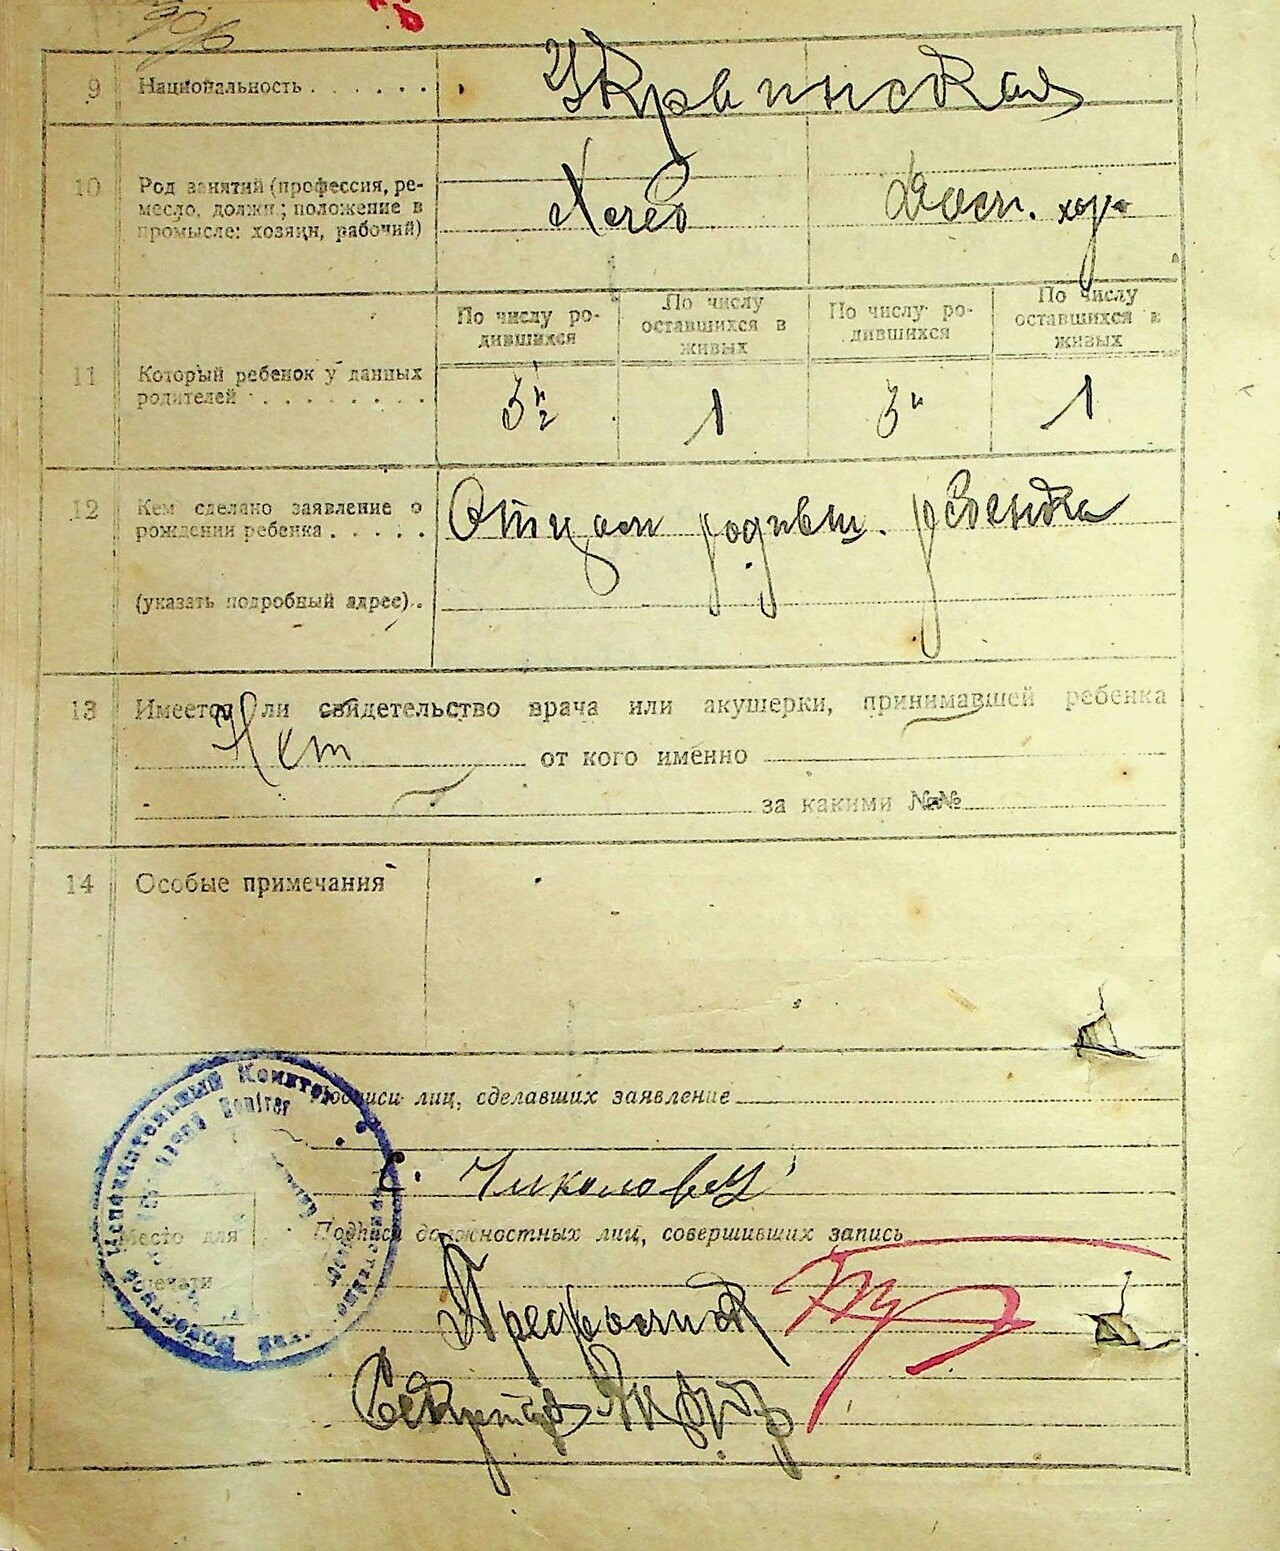 9 Национальность . . . . . . Украинская
10 Род занятий (профессия, ре-
месло, должн.; положение в
промысле: хозяин, рабочий)
Хлеб Дом. хоз.
11 Который ребенок у данных
родителей . . . . . . . .
По числу ро-
дившихся
По числу
оставшихся в
живых
По числу ро-
дившихся
По числу
оставшихся в
живых
3й 1 3й 1
12 Кем сделано заявление о
рождении ребенка . . . . .
(указать подробный адрес) . .
Отцом родивш. ребенка
13 Имеется ли свидетельство врача или акушерки, принимавшей ребенка
Нет от кого именно
за какими №№
14 Особые примечания
Подписи лиц, сделавших заявление
Подписи должностных лиц, совершивших запись
Место для
печати
Исполнительный Комитет
Секретарь